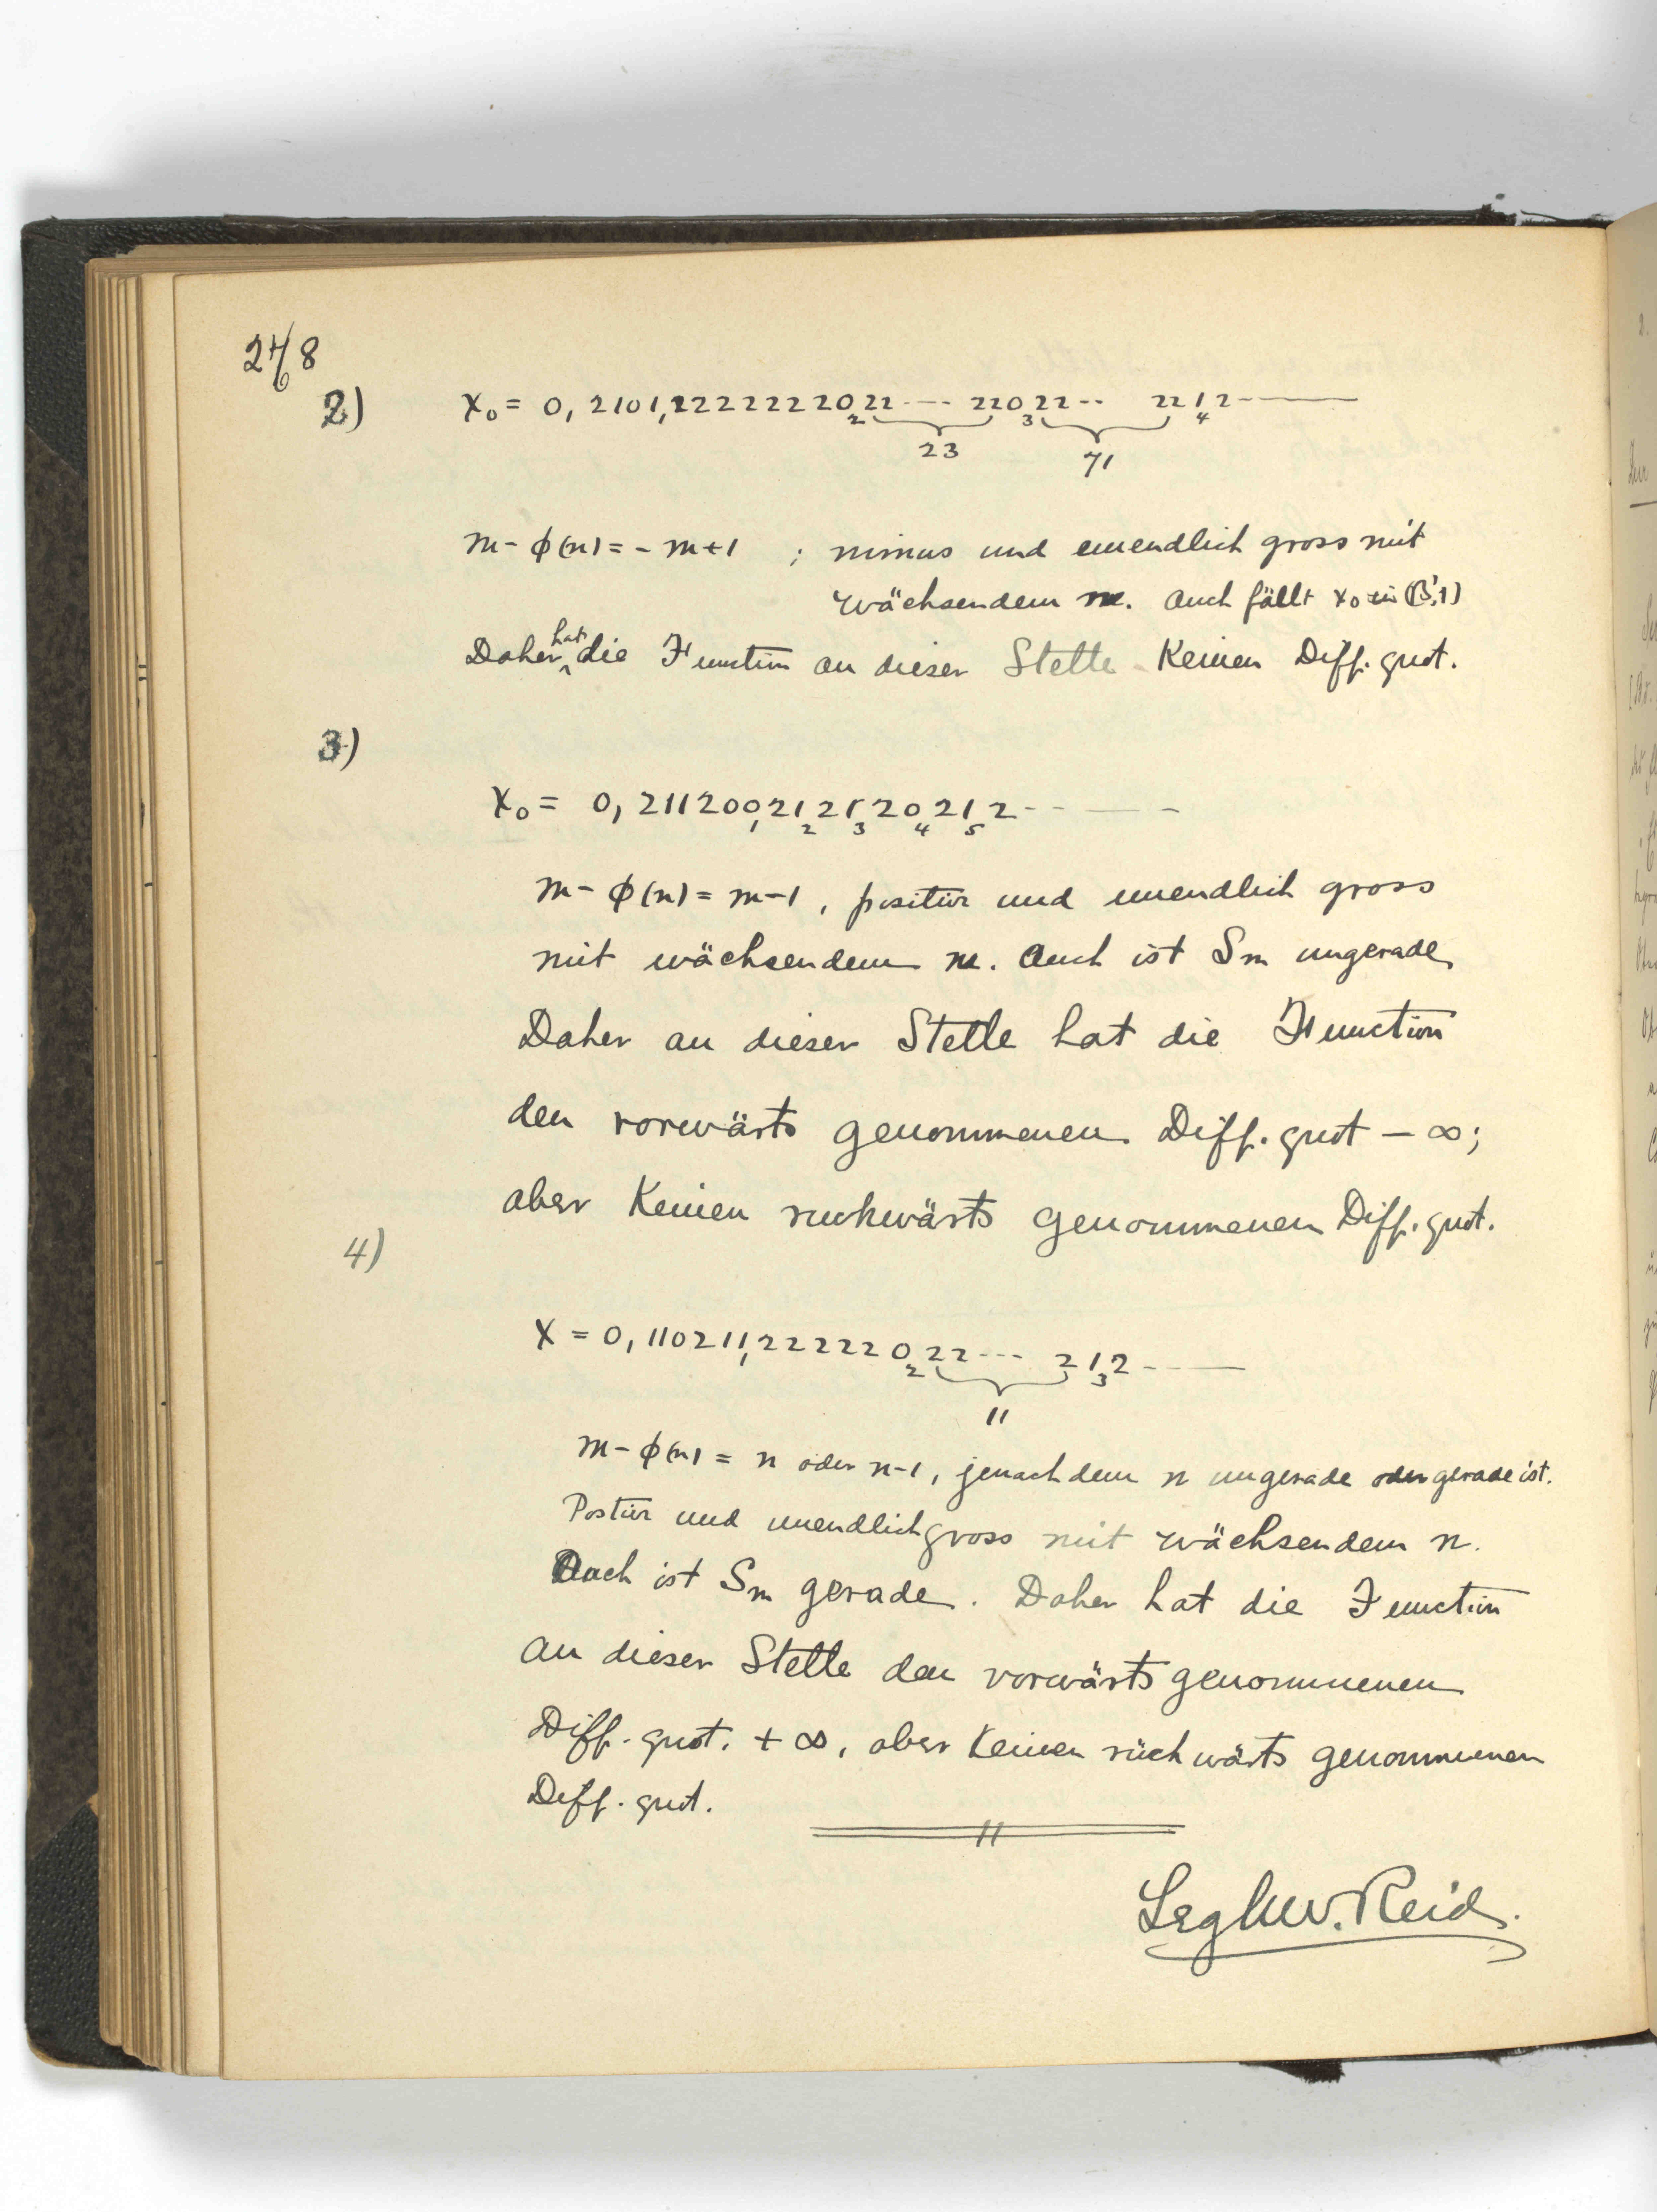 248
2) x₀ = 0, 2101,22222222022---- 22022-- 2212
1 2 3 4
23 71
m - φ(n) = - m+1 ; minus und unendlich gross mit
wächsendem m. Auch fällt x₀ in (B',1)
hat
Daher die Function an dieser Stelle keinen Diff. quot.
3)
x₀ = 0, 21120021212021 2-- --- -
1 2 3 4 5
m - φ(n) = m-1, positiv und unendlich gross
mit wächsendem m. Auch ist Sm ungerade
Daher an dieser Stelle hat die Function
den vorwärts genommenen Diff. quot - ∞;
aber keinen ruckwärts genommenen Diff. quot.
4)
x = 0, 110211,22222022--- 212- ---
1 2 3
11
m - φ(n) = n oder n-1, jenachdem n ungerade oder gerade ist.
Postiv und unendlich gross mit wächsendem n.
Auch ist Sm gerade. Daher hat die Function
an dieser Stelle den vorwärts genommenen
Diff. quot. + ∞, aber keinen rückwärts genommenen
Diff. quot.
Legh W. Reid.